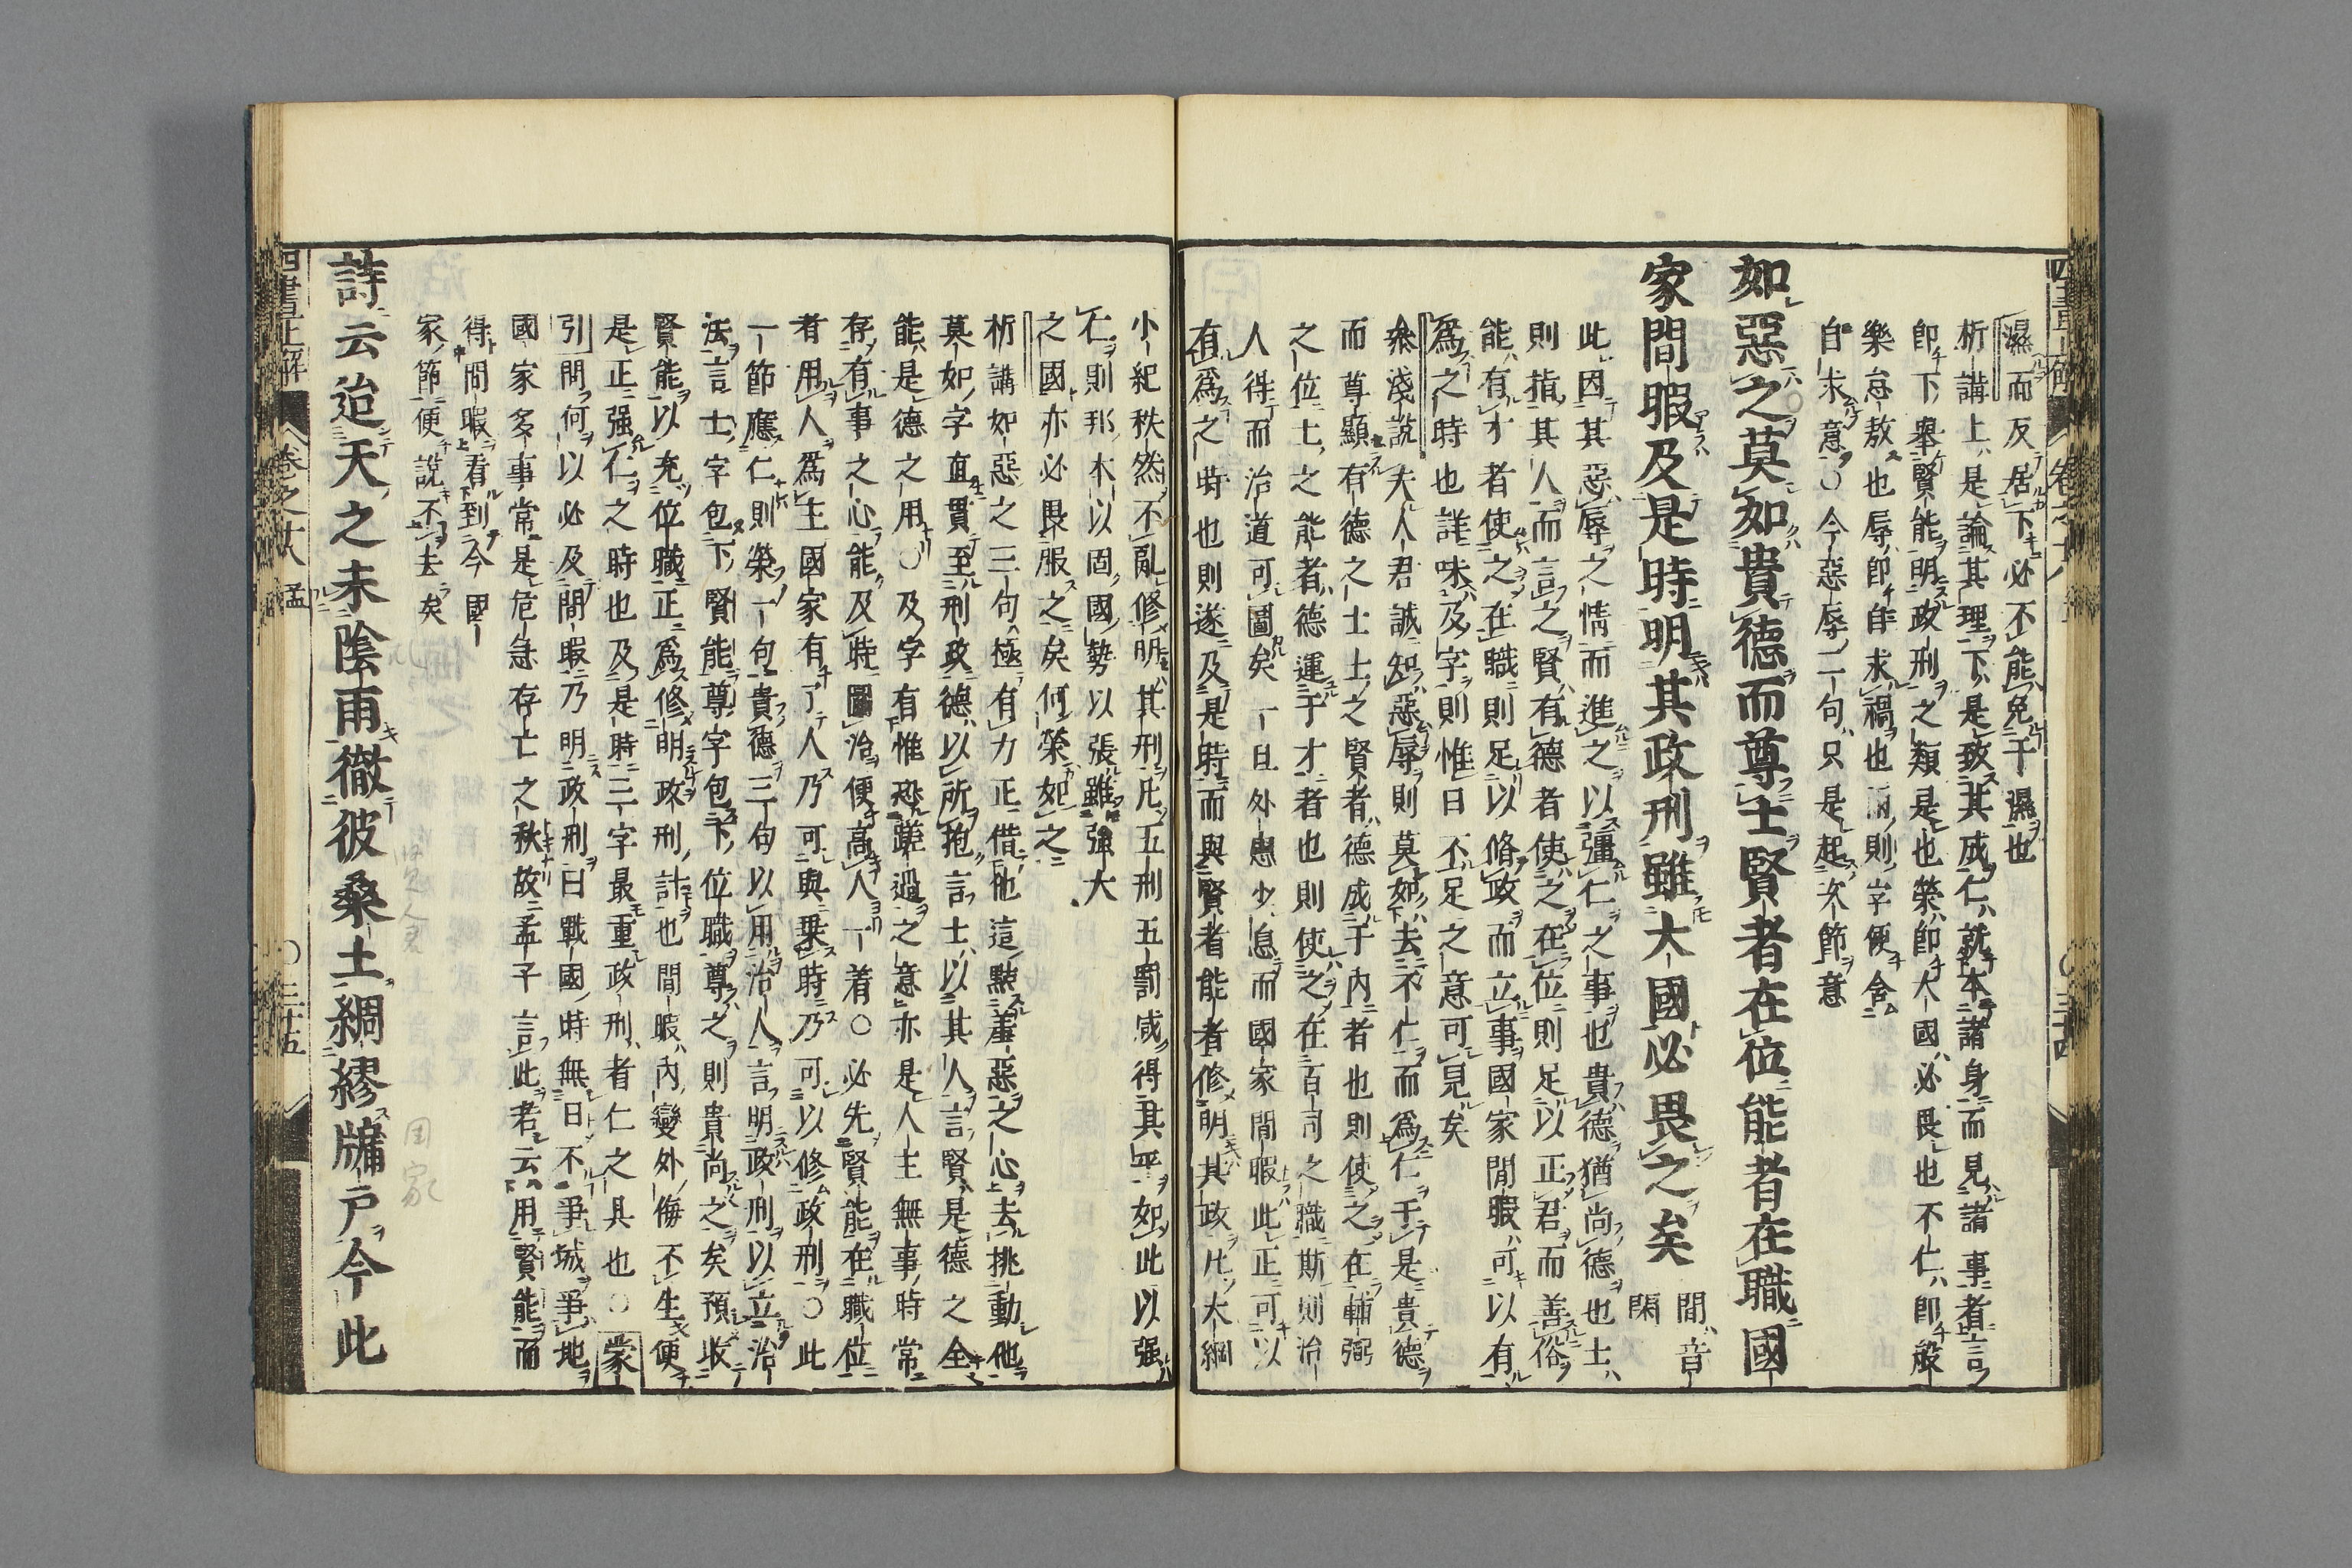 濕而反居下必不能免于濕也
析講上是論其理下是致其成仁就本諸身而見諸事者言
即下舉賢能明政刑之類是也榮即大國必畏也不仁即般
樂怠敖也辱即自求禍也兩則字便含
自求意○今惡辱二句只是起次節意
如惡之莫如貴德而尊士賢者在位能者在職國
家間暇及是時明其政刑雖大國必畏之矣 間音
閑
此因其惡辱之情而進之以彊仁之事也貴德猶尚德也士
則指其人而言之賢有德者使之在位則足以正君而善俗
能有才者使之在職則足以脩政而立事國家閒暇可以有
為之時也詳味及字則惟日不足之意可見矣
叅淺說夫人君誠知惡辱則莫如去不仁而為仁于是貴德
而尊顯有德之士士之賢者德成于內者也則使之在輔弼
之位士之能者德運于才者也則使之在百司之職斯則治
人得而治道可圖矣一旦外患少息而國家閒暇此正可以
有為之時也則遂及是時而與賢者能者修明其政凡大綱
小紀秩然不亂修明其刑凡五刑五罰咸得其平如此以强
仁則邦本以固國勢以張雖強大
之國亦必畏服之矣何榮如之
析講如惡之三句極有力正借他這點羞惡之心去挑動他
莫如字直貫至刑政德以所抱言士以其人言賢是德之全
能是德之用○及字有惟恐蹉過之意亦是人主無事時常
存有事之心能及時圖治便高人一着○必先賢能在職位
者用人為主國家有了人乃可與乗時乃可以修政刑○此
一節應仁則榮一句貴德三句以用治人言明政刑以立治
法言士字包下賢能尊字包下位職尊之則貴尚之矣預收
賢能以充位職正為修明政刑計也間暇內變外侮不生便
是正强仁之時也及是時三字最重政刑者仁之具也○蒙
引問何以必及間暇乃明政刑曰戰國時無日不爭城爭地
國家多事常是危急存亡之秋故孟子言此若云用賢能而
得間暇看到今國
家節便說不去矣
詩云迨天之未陰雨徹彼桑土綢繆牖戶今此
四書正解 卷之十八 孟 ○三十五